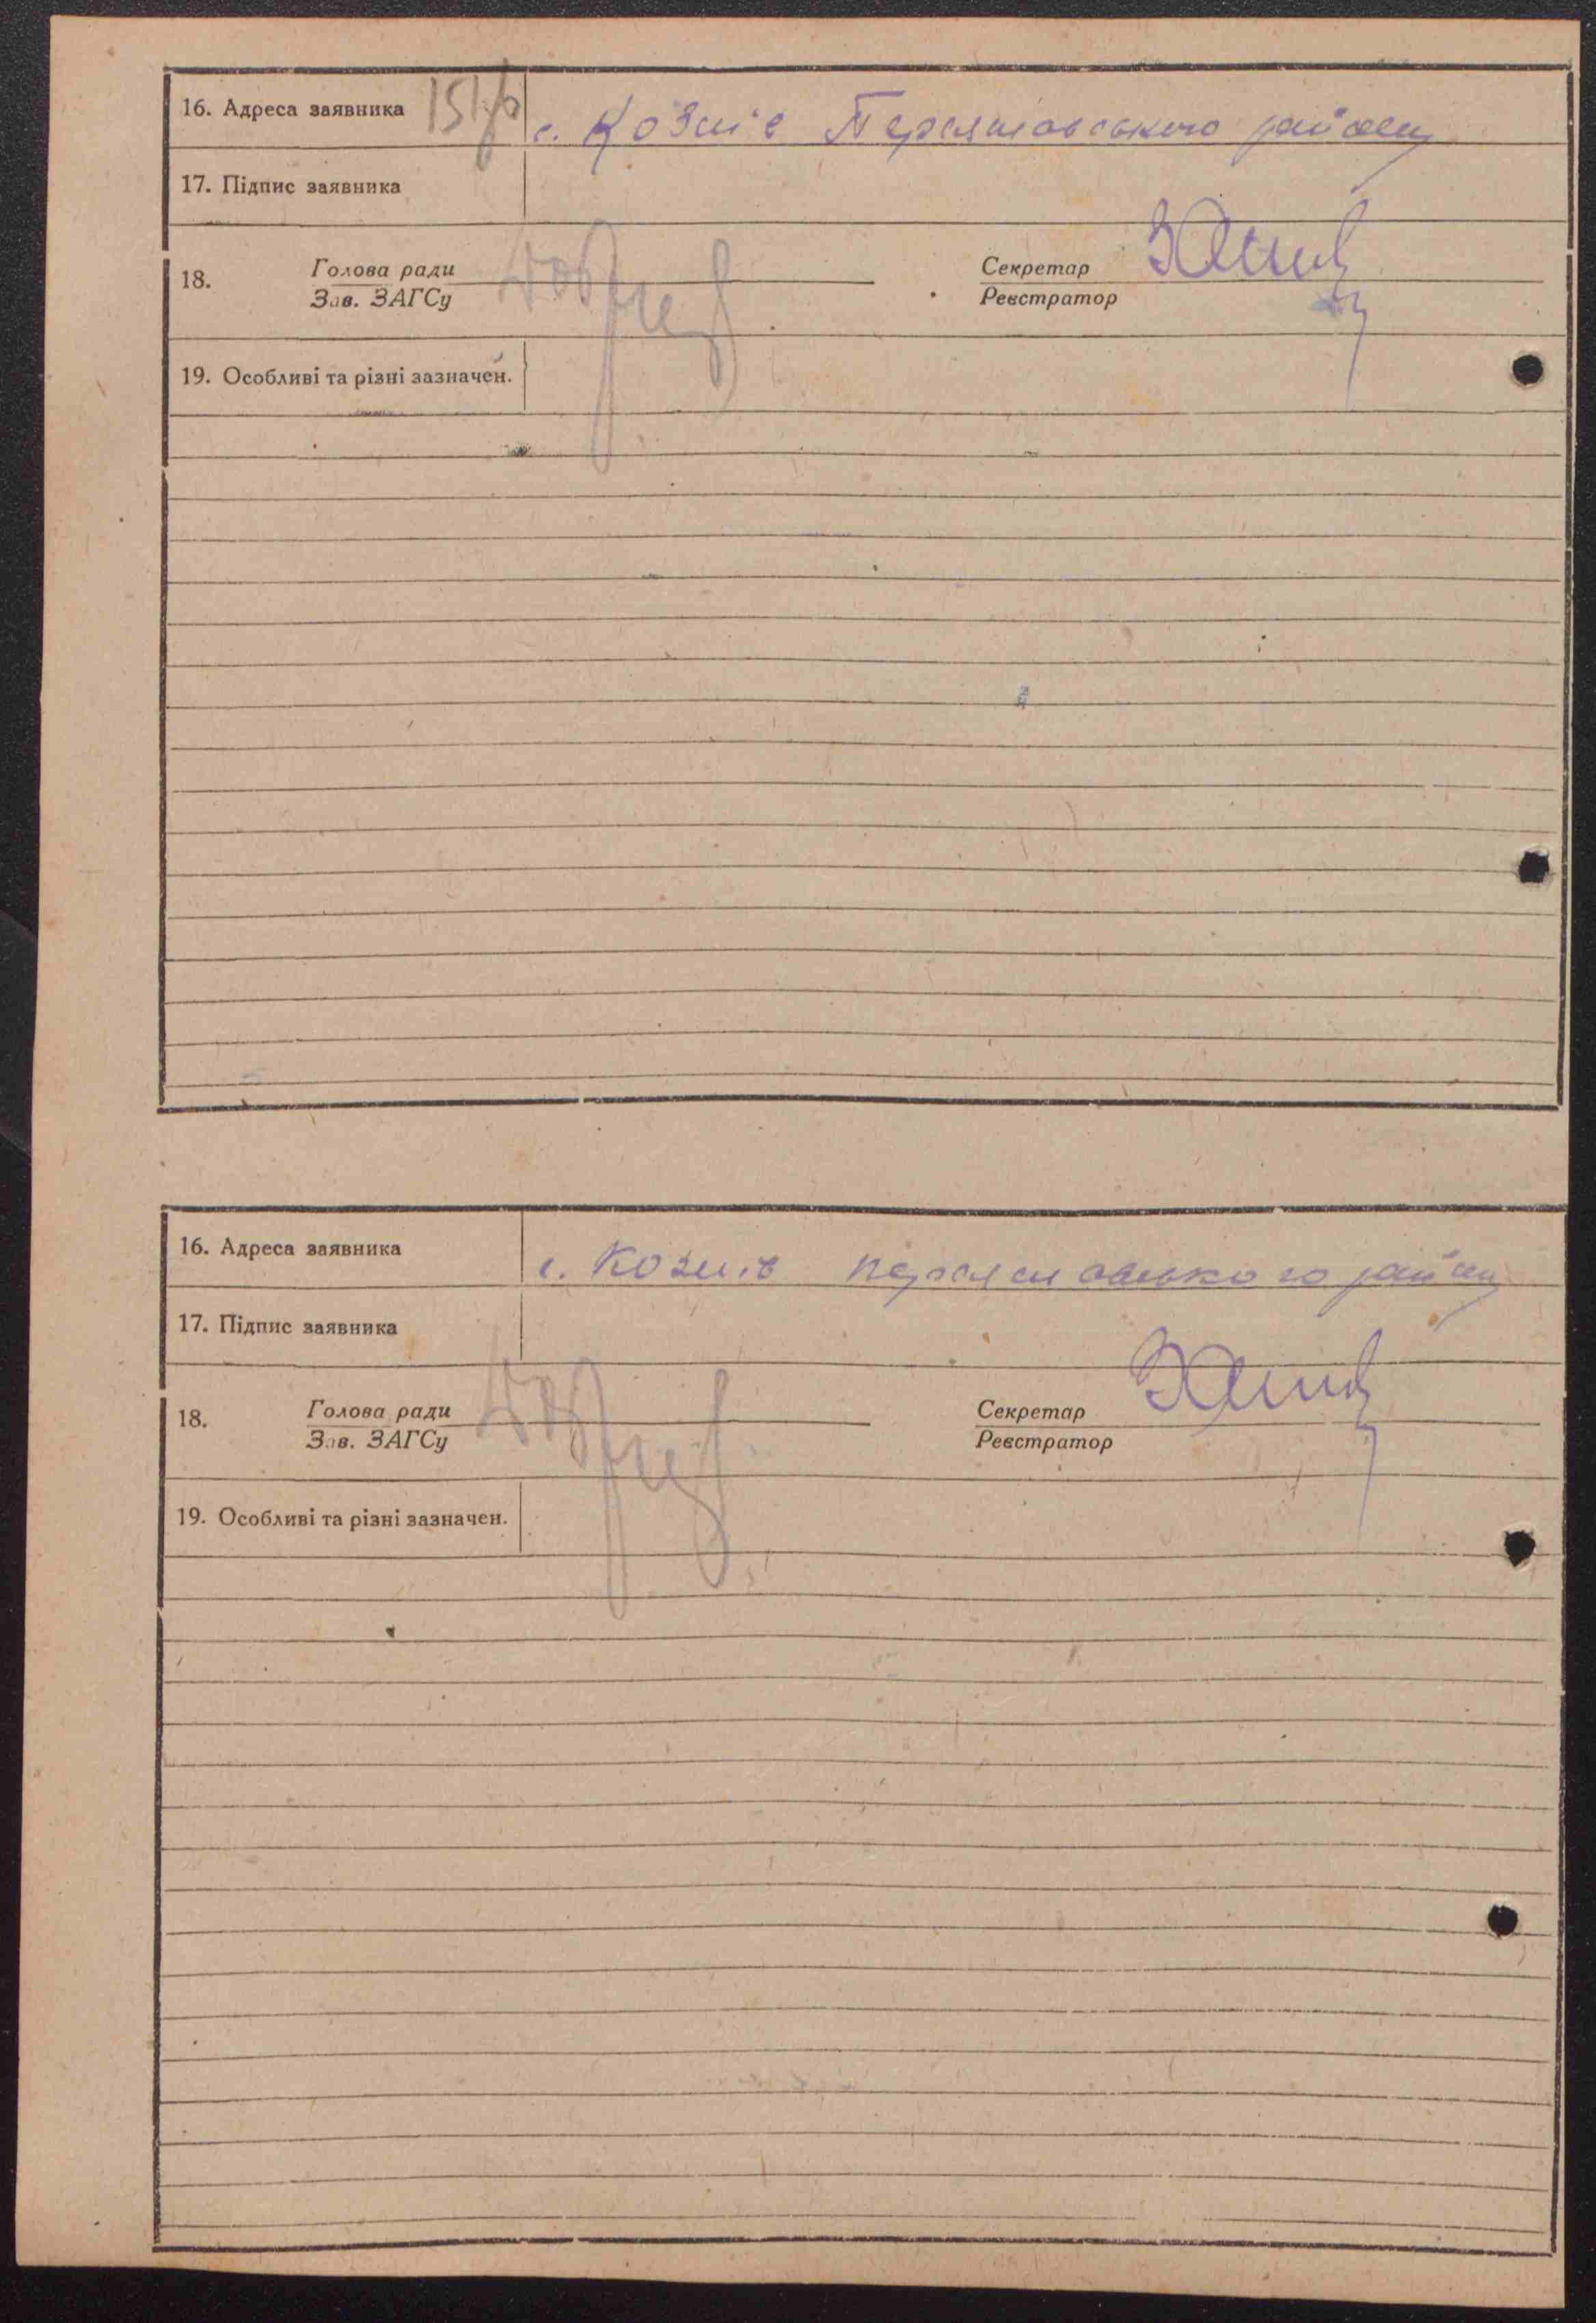 16. Адреса заявника с. Козлів Переяславського району
17. Підпис заявника
18. Голова ради Секретар
Зав. ЗАГСу Реєстратор
19. Особливі та різні зазначен.
16. Адреса заявника с. Козлів Переяславського району
17. Підпис заявника
18. Голова ради Секретар
Зав. ЗАГСу Реєстратор
19. Особливі та різні зазначен.